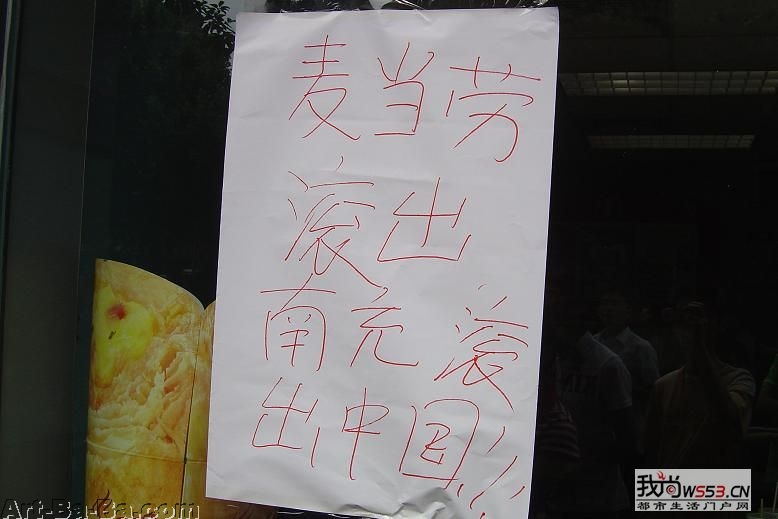 麦当劳
滚出
南充滚
出中国!!!
Art-Ba-Ba.com
我尚WS53.CN
都市生活门户网